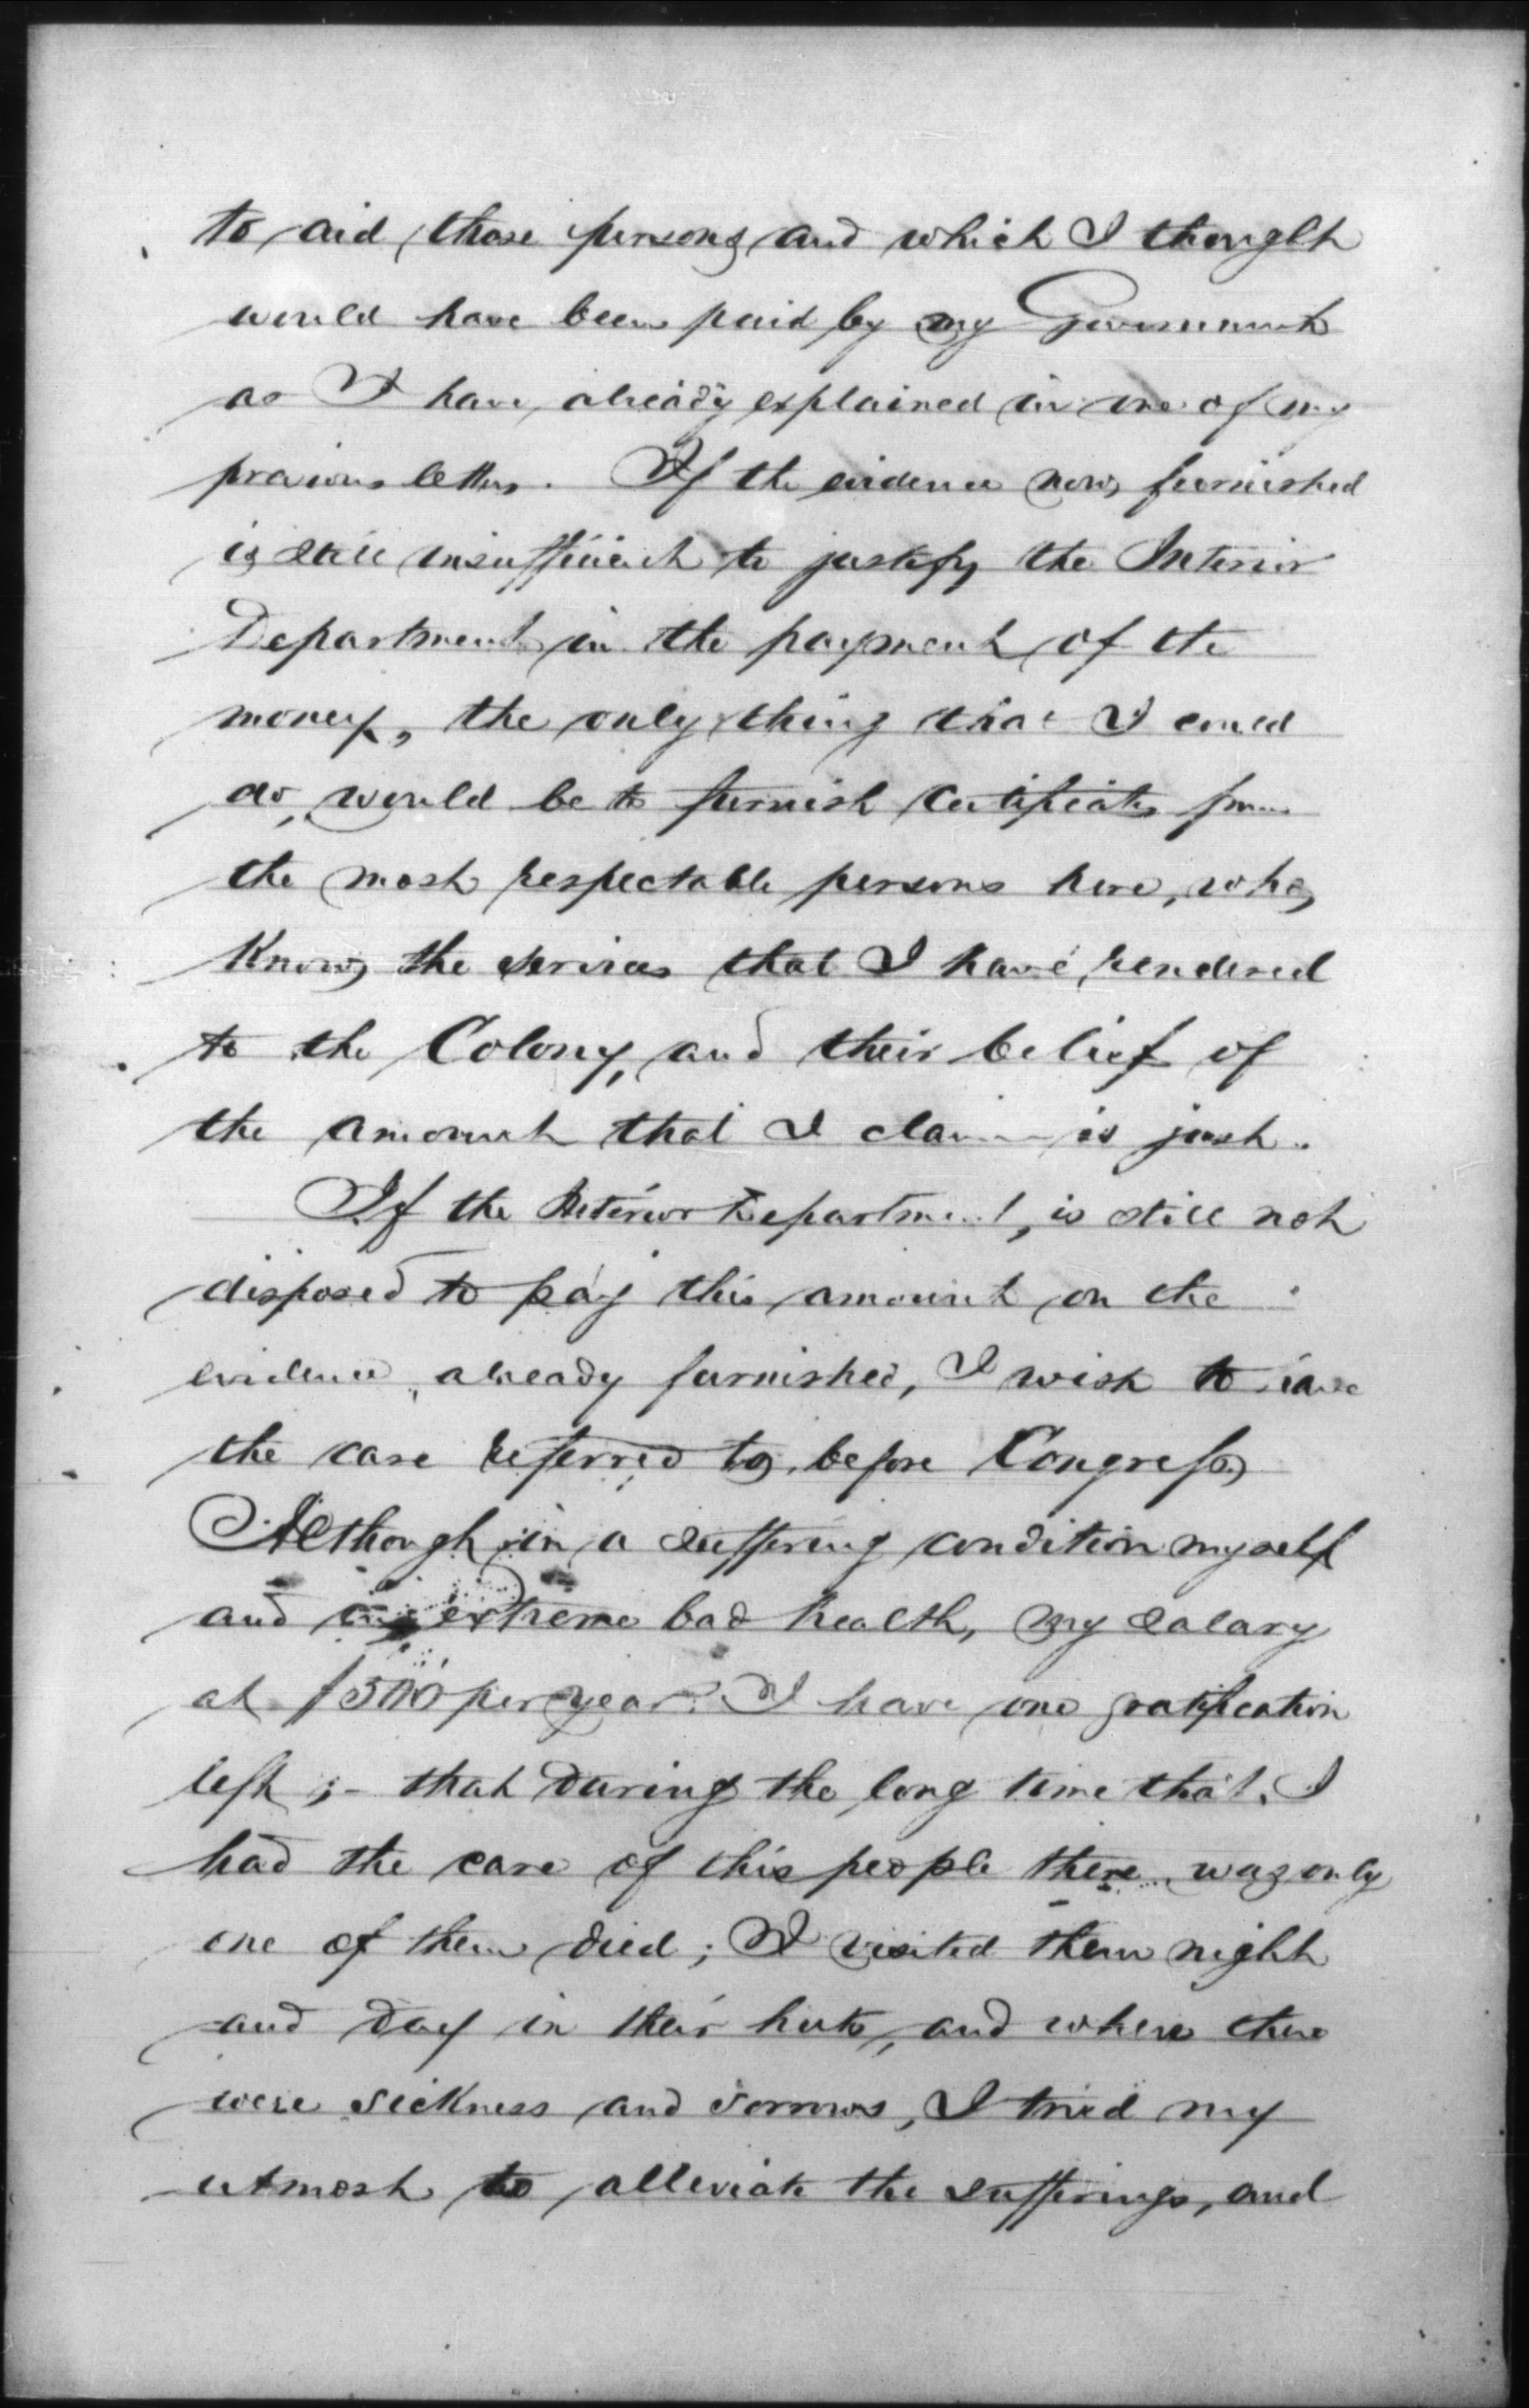 to aid those persons and which I thought
would have been paid by my Government
as I have already explained in one of my
previous letters. If the evidence now furnished
is still insufficient to justify the Interior
Department in the payment of the
money, the only thing that I could
do, would be to furnish certificates from
the most respectable persons here, who
know the services that I have rendered
to the Colony, and their belief of
the amount that I claim is just.
If the Interior Department, is still not
disposed to pay this amount on the
evidence already furnished, I wish to have
the case referred to, before Congress
Although in a suffering condition myself
and in extreme bad health, my salary
at $500 per year. I have one gratification
left;- that during the long time that I
had the care of this people there was only
one of them died; I visited them night
and day in their huts, and where there
were sickness and sorrows, I tried my
utmost to alleviate the sufferings, and